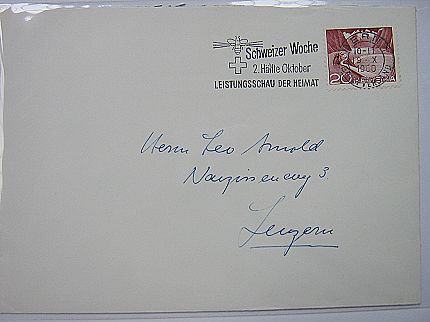 Schweizer Woche
2. Hälfte Oktober
LEISTUNGSSCHAU DER HEIMAT
10-11
19-X
1960
20
HELVETIA
Herrn Leo Arnold
Narzissenweg 3
Luzern